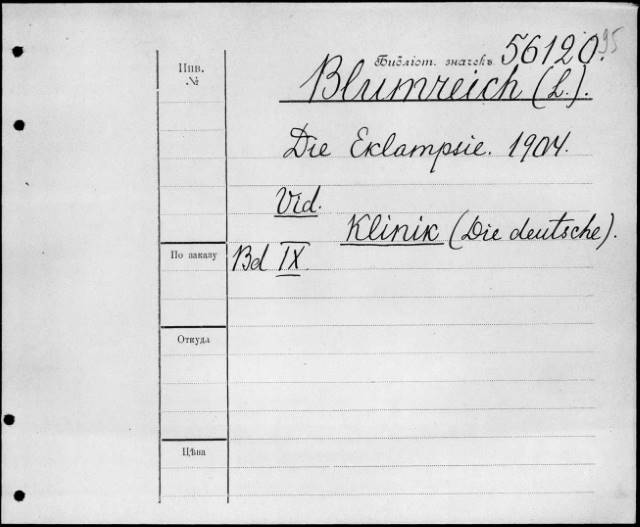 95
Инв.
№
Бібліот. значекъ 56120.
Blumreich (L.).
Die Eklampsie. 1904.
Vid.
Klinik (Die deutsche).
По заказу
Bd IX.
Откуда
Цѣна